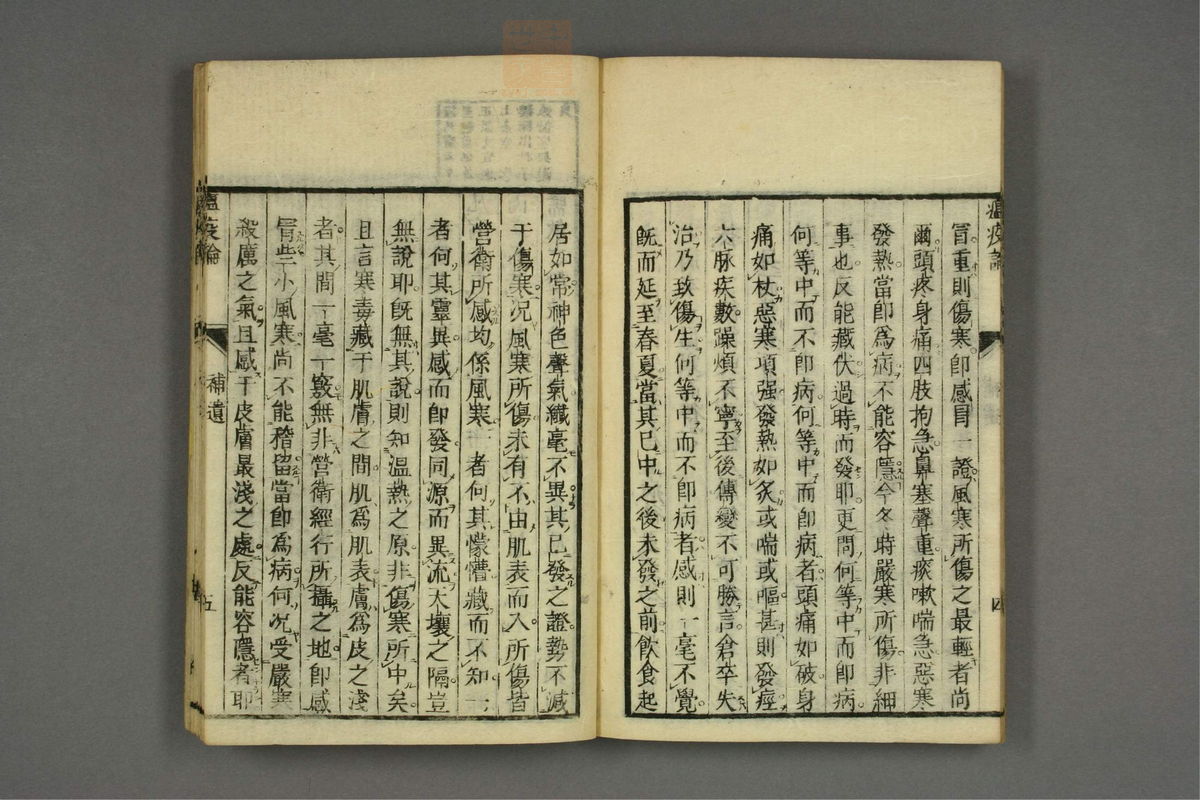 瘟疫論
冐重則傷寒即感冐一證風寒所傷之最輕者尚
爾頭疼身痛四肢拘急鼻塞聲重痰嗽喘急惡寒
發熱當即爲病不能容隱今冬時嚴寒所傷非細
事也反能藏伏過時而發耶更問何等中而即病
何等中而不即病何等中而即病者頭痛如破身
痛如杖惡寒項强發熱如炙或喘或嘔甚則發痙
六脉疾數躁煩不寧至後傳變不可勝言倉卒失
治乃致傷生何等中而不即病者感則一毫不覺
既而延至春夏當其已中之後未發之前飲食起
四
居如常神色聲氣纎毫不異其已發之證勢不減
于傷寒况風寒所傷未有不由肌表而入所傷皆
營衛所感均係風寒一者何其懞懵藏而不知一
者何其靈異感而即發同源而異流天壤之隔豈
無說耶既無其說則知温熱之原非傷寒所中矣
且言寒毒藏于肌膚之間肌爲肌表膚爲皮之淺
者其間一毫一竅無非營衛經行所攝之地即感
冐些小風寒尚不能稽留當即爲病何况受嚴寒
殺厲之氣且感于皮膚最淺之處反能容隱者耶
瘟疫論
補遺
五